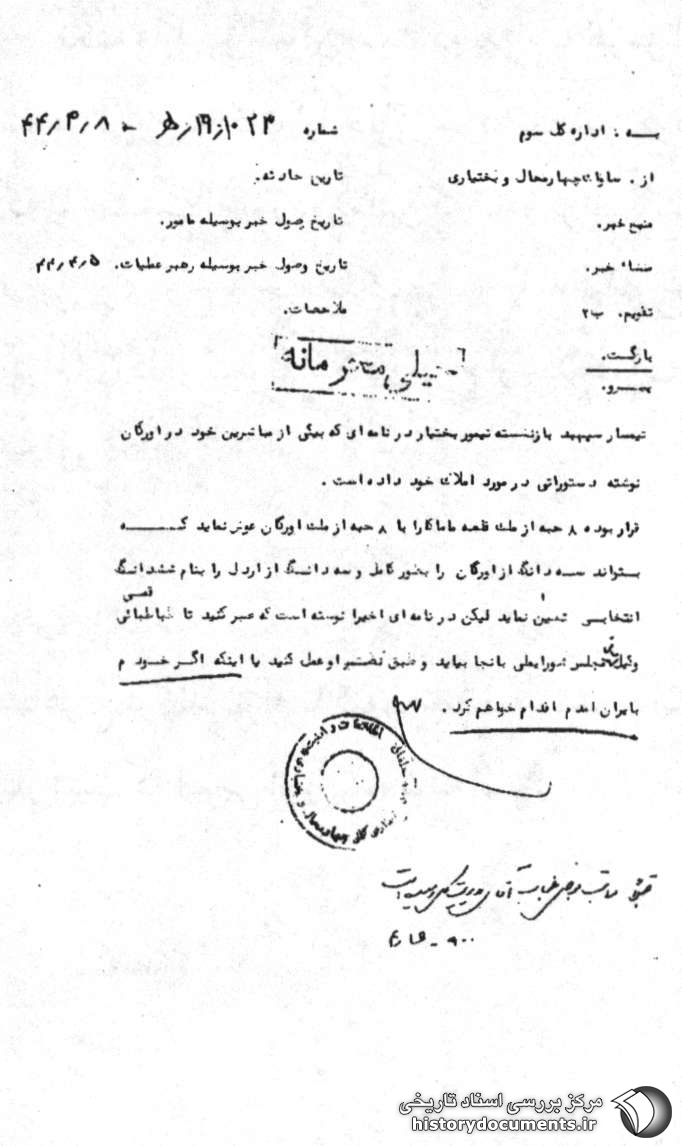 به : اداره کل سوم
شماره ۱۰۲۳/ز۱۹/هـ - ۴۴/۴/۸
از . ساواک چهارمحال و بختیاری
تاریخ حادثه.
منبع خبر.
تاریخ وصول خبر بوسیله مامور.
منشاء خبر.
تاریخ وصول خبر بوسیله رهبر عملیات. ۴۴/۴/۵
تقویم. ب۲
ملاحضات.
بازگشت.
خیلی محرمانه
پیرو.
تیمسار سپهبد بازنشسته تیمور بختیار در نامه ای که بیکی از مباشرین خود در اورگان
نوشته دستوراتی در مورد املاک خود داده است .
قرار بوده ۸ حبه از ملک قلعه ماماکارا با ۸ حبه از ملک اورگان عوض نماید کـــه
بتواند سه دانگ از اورگان را بطور کامل و سه دانگ از اردل را بنام ششدانگ
انتخابی تعیین نماید لیکن در نامه ای اخیرا نوشته است که صبر کنید تا طباطبائی
قمی
وکیل مجلس شورایملی بانجا بیاید و طبق تصمیم او عمل کنید یا اینکه اگر خودم
بایران امدم اقدام خواهم کرد .
مرکز بررسی اسناد تاریخی
historydocuments.ir